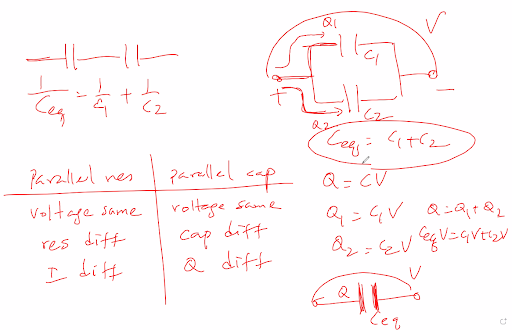 1/Ceq = 1/C1 + 1/C2
Q1
V
C1
+
-
Q2
C2
Ceq = C1 + C2
Parallel res | parallel cap
voltage same | voltage same
res diff | cap diff
I diff | Q diff
Q = CV
Q1 = C1V
Q = Q1 + Q2
Q2 = C2V
CeqV = C1V + C2V
Q
V
Ceq